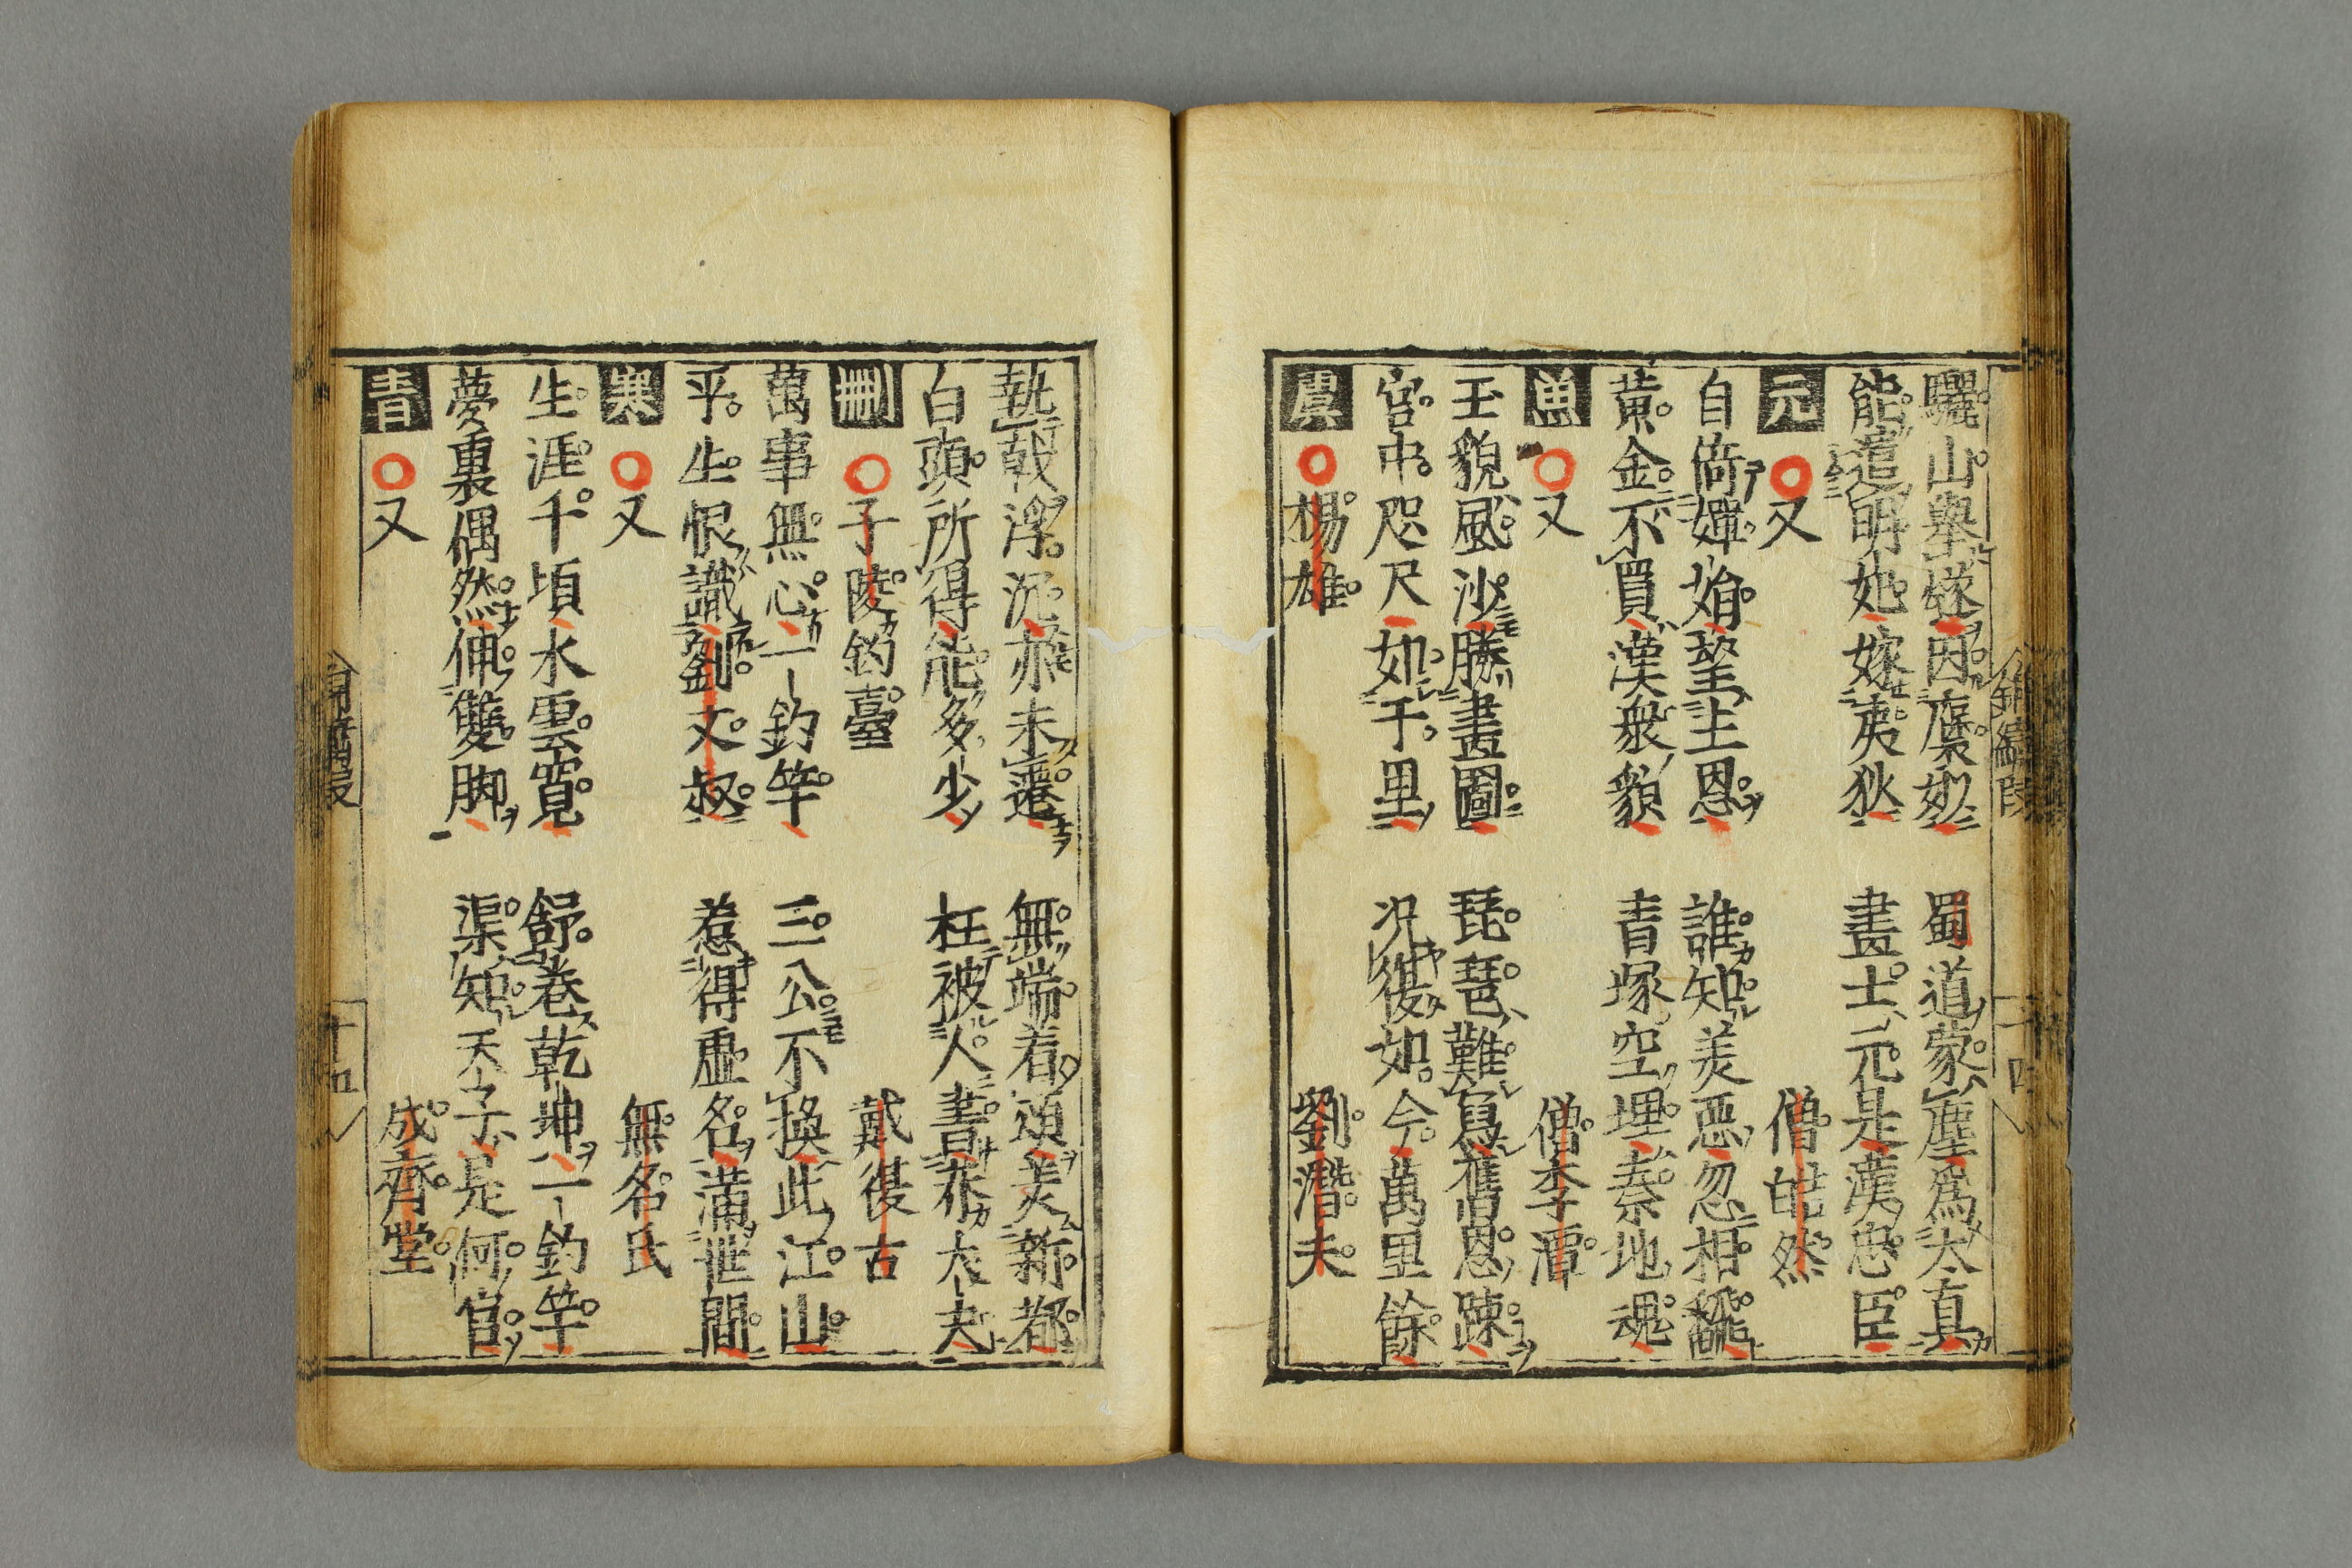 驪山舉燧因褒姒蜀道蒙塵爲太真
能遣明妃嫁夷狄畫士元是漢忠臣
元又僧皓然
自倚嬋娟望主恩誰知美惡忽相翻
黄金不買漢衆貌青塚空埋秦地魂
魚又僧李潭
玉貌風沙勝畫圖琵琶難寫舊恩踈
宮中咫尺如千里况復如今萬里餘
虞楊雄劉潛夫
執戟浮沉亦未遷無端着頌美新都
白頭所得能多少枉被人書莽大夫
刪子陵釣臺戴復古
萬事無心一釣竿三公不換此江山
平生恨識劉文叔惹得虛名滿世間
寒又無名氏
生涯千頃水雲寬舒卷乾坤一釣竿
夢裏偶然伸雙脚渠知天子是何官
青又成齊堂